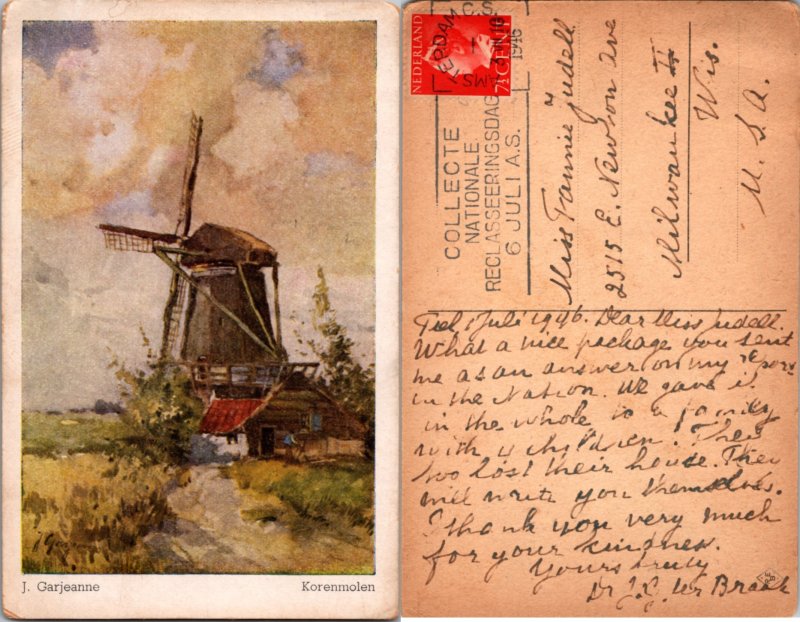 J. Garjeanne
Korenmolen
NEDERLAND
7½ CENT
AMSTERDAM C.S.
1946
COLLECTE
NATIONALE
RECLASSEERINGSDAG
6 JULI A.S.
Miss Fannie Judell
2515 E. Newton Ave
Milwaukee II
Wis.
U.S.A.
Tiel 1 Juli 1946. Dear Miss Judell.
What a nice package you sent
me as an answer on my
in the Nation. We gave it
in the whole to a family
with 4 children! They
too lost their house. They
will write you themselves.
I thank you very much
for your kindness.
Yours truly
Dr J.G. ter Braak